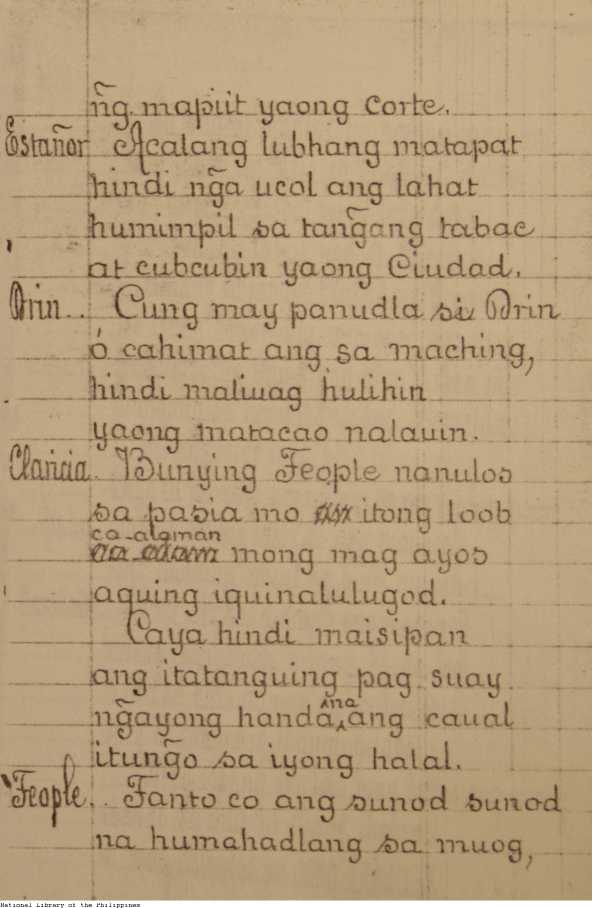 ñg̃ mapiit yaong corte.
Estañor Acalang lubhang matapat
hindi ng̃a ucol ang lahat
humimpil sa tang̃ang tabac
at cubcubin yaong Ciudad.
Orin.. Cung may panudla si Orin
ó cahimat ang sa maching,
hindi maliuag hulihin
yaong matacao nalauin.
Clancia. Bunying Feople nanulos
sa pasia mo itong loob
ca-alaman
mong mag ayos
aquing iquinalulugod.
Caya hindi maisipan
ang itatanguing pag suay
ng̃ayong handa na ang caual
itung̃o sa iyong halal.
Feople.. Tanto co ang sunod sunod
na humahadlang sa muog,
National Library of the Philippines